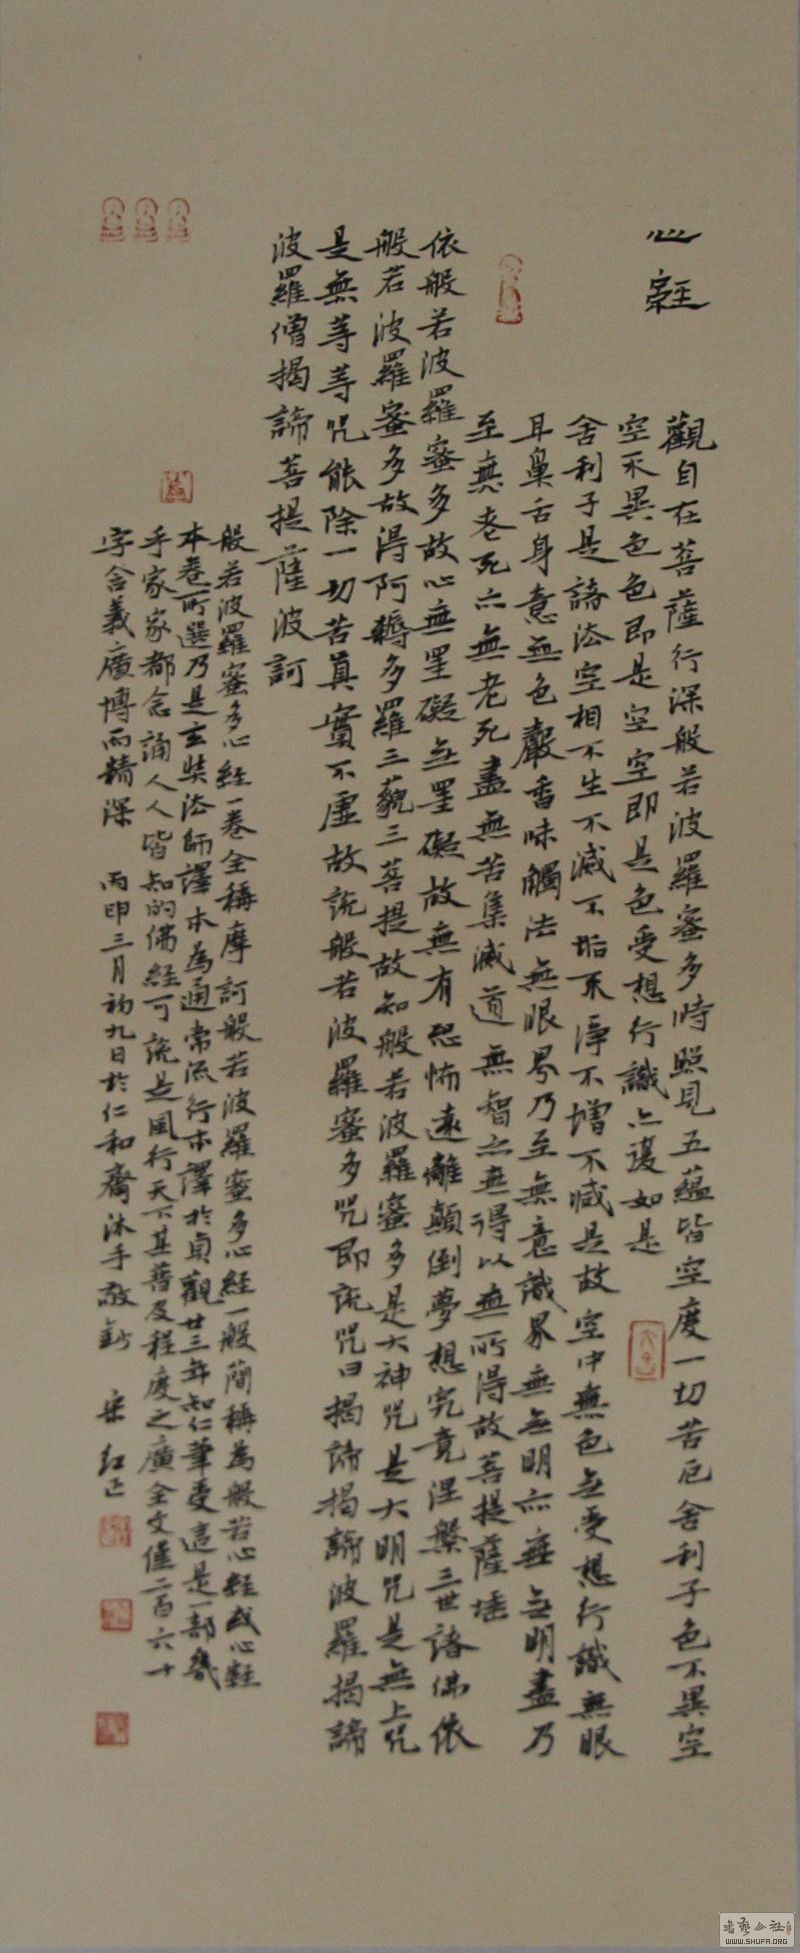 心經
觀自在菩薩行深般若波羅蜜多時照見五蘊皆空度一切苦厄舍利子色不異空
空不異色色即是空空即是色受想行識亦復如是
舍利子是諸法空相不生不滅不垢不淨不增不減是故空中無色無受想行識無眼
耳鼻舌身意無色聲香味觸法無眼界乃至無意識界無無明亦無無明盡乃
至無老死亦無老死盡無苦集滅道無智亦無得以無所得故菩提薩埵
依般若波羅蜜多故心無罣礙無罣礙故無有恐怖遠離顛倒夢想究竟涅槃三世諸佛依
般若波羅蜜多故得阿耨多羅三藐三菩提故知般若波羅蜜多是大神咒是大明咒是無上咒
是無等等咒能除一切苦真實不虛故說般若波羅蜜多咒即說咒曰揭諦揭諦波羅揭諦
波羅僧揭諦菩提薩波訶
般若波羅蜜多心經一卷全稱摩訶般若波羅蜜多心經一般簡稱為般若心經或心經
本卷所選乃是玄奘法師譯本為通常流行本譯於貞觀廿三年知仁筆受這是一部幾
乎家家都念誦人人皆知的佛經可說是風行天下其普及程度之廣全文僅二百六十
字含義廣博而精深 丙申三月初九日於仁和齋沐手敬鈔 宋紅正
WWW.SHUFA.ORG